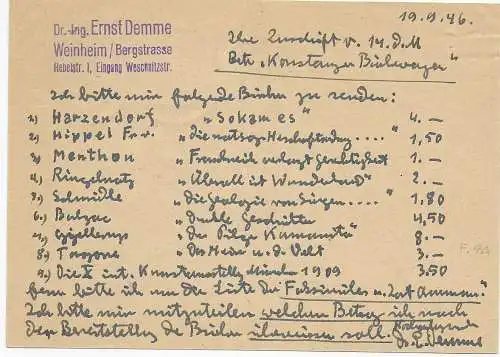 Dr.-Ing. Ernst Demme
Weinheim/Bergstrasse
Nebelstr. 1, Eingang Weschnitzstr.
19.9.46.
Ihre Zuschrift v. 14. d. M
Betr. „Konstanzer Bücherwagen“
Ich bitte mir folgende Bücher zu senden:
1.) Harzendorf „Sokames“ 4.—
2.) Hippel Fr. v. „die natsoz. Herrschaftsordng....“ 1,50
3.) Menthon „Frankreich verlangt Gerechtigkeit 1.—
4.) Ringelnatz „Überall ist Wunderland“ 2.—
5.) Schmidle „die Geologie von Singen....“ 1.80
6.) Balzac „Dunkle Geschichte 4,50
7.) Gjellerup „Der Pilger Kamanita“ 8.—
8.) „Das Meine u. d. Welt 3.—
9.) Die X int. Kunstausstellg München 1909 3.50
ferner bitte ich um die Liste der Faksimiles u.
Ich bitte mir mitzuteilen welchen Betrag ich nach
der Bereitstellg der Bücher überweisen soll. Hochachtungsvoll
Dr. E. Demme